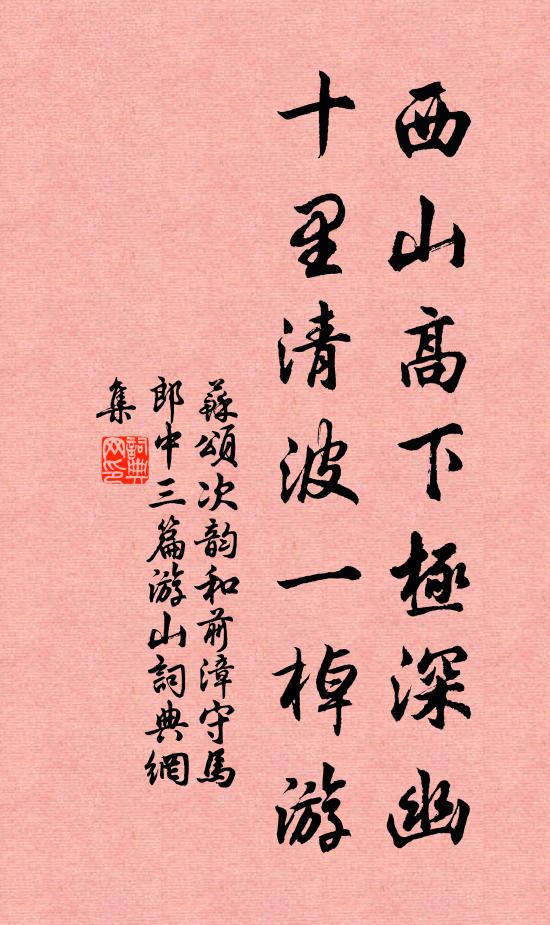 西山高下極深幽
十里清波一棹游
蘇頌次韵和前漳守馬
郎中三篇游山詞典網
集
詞典网印